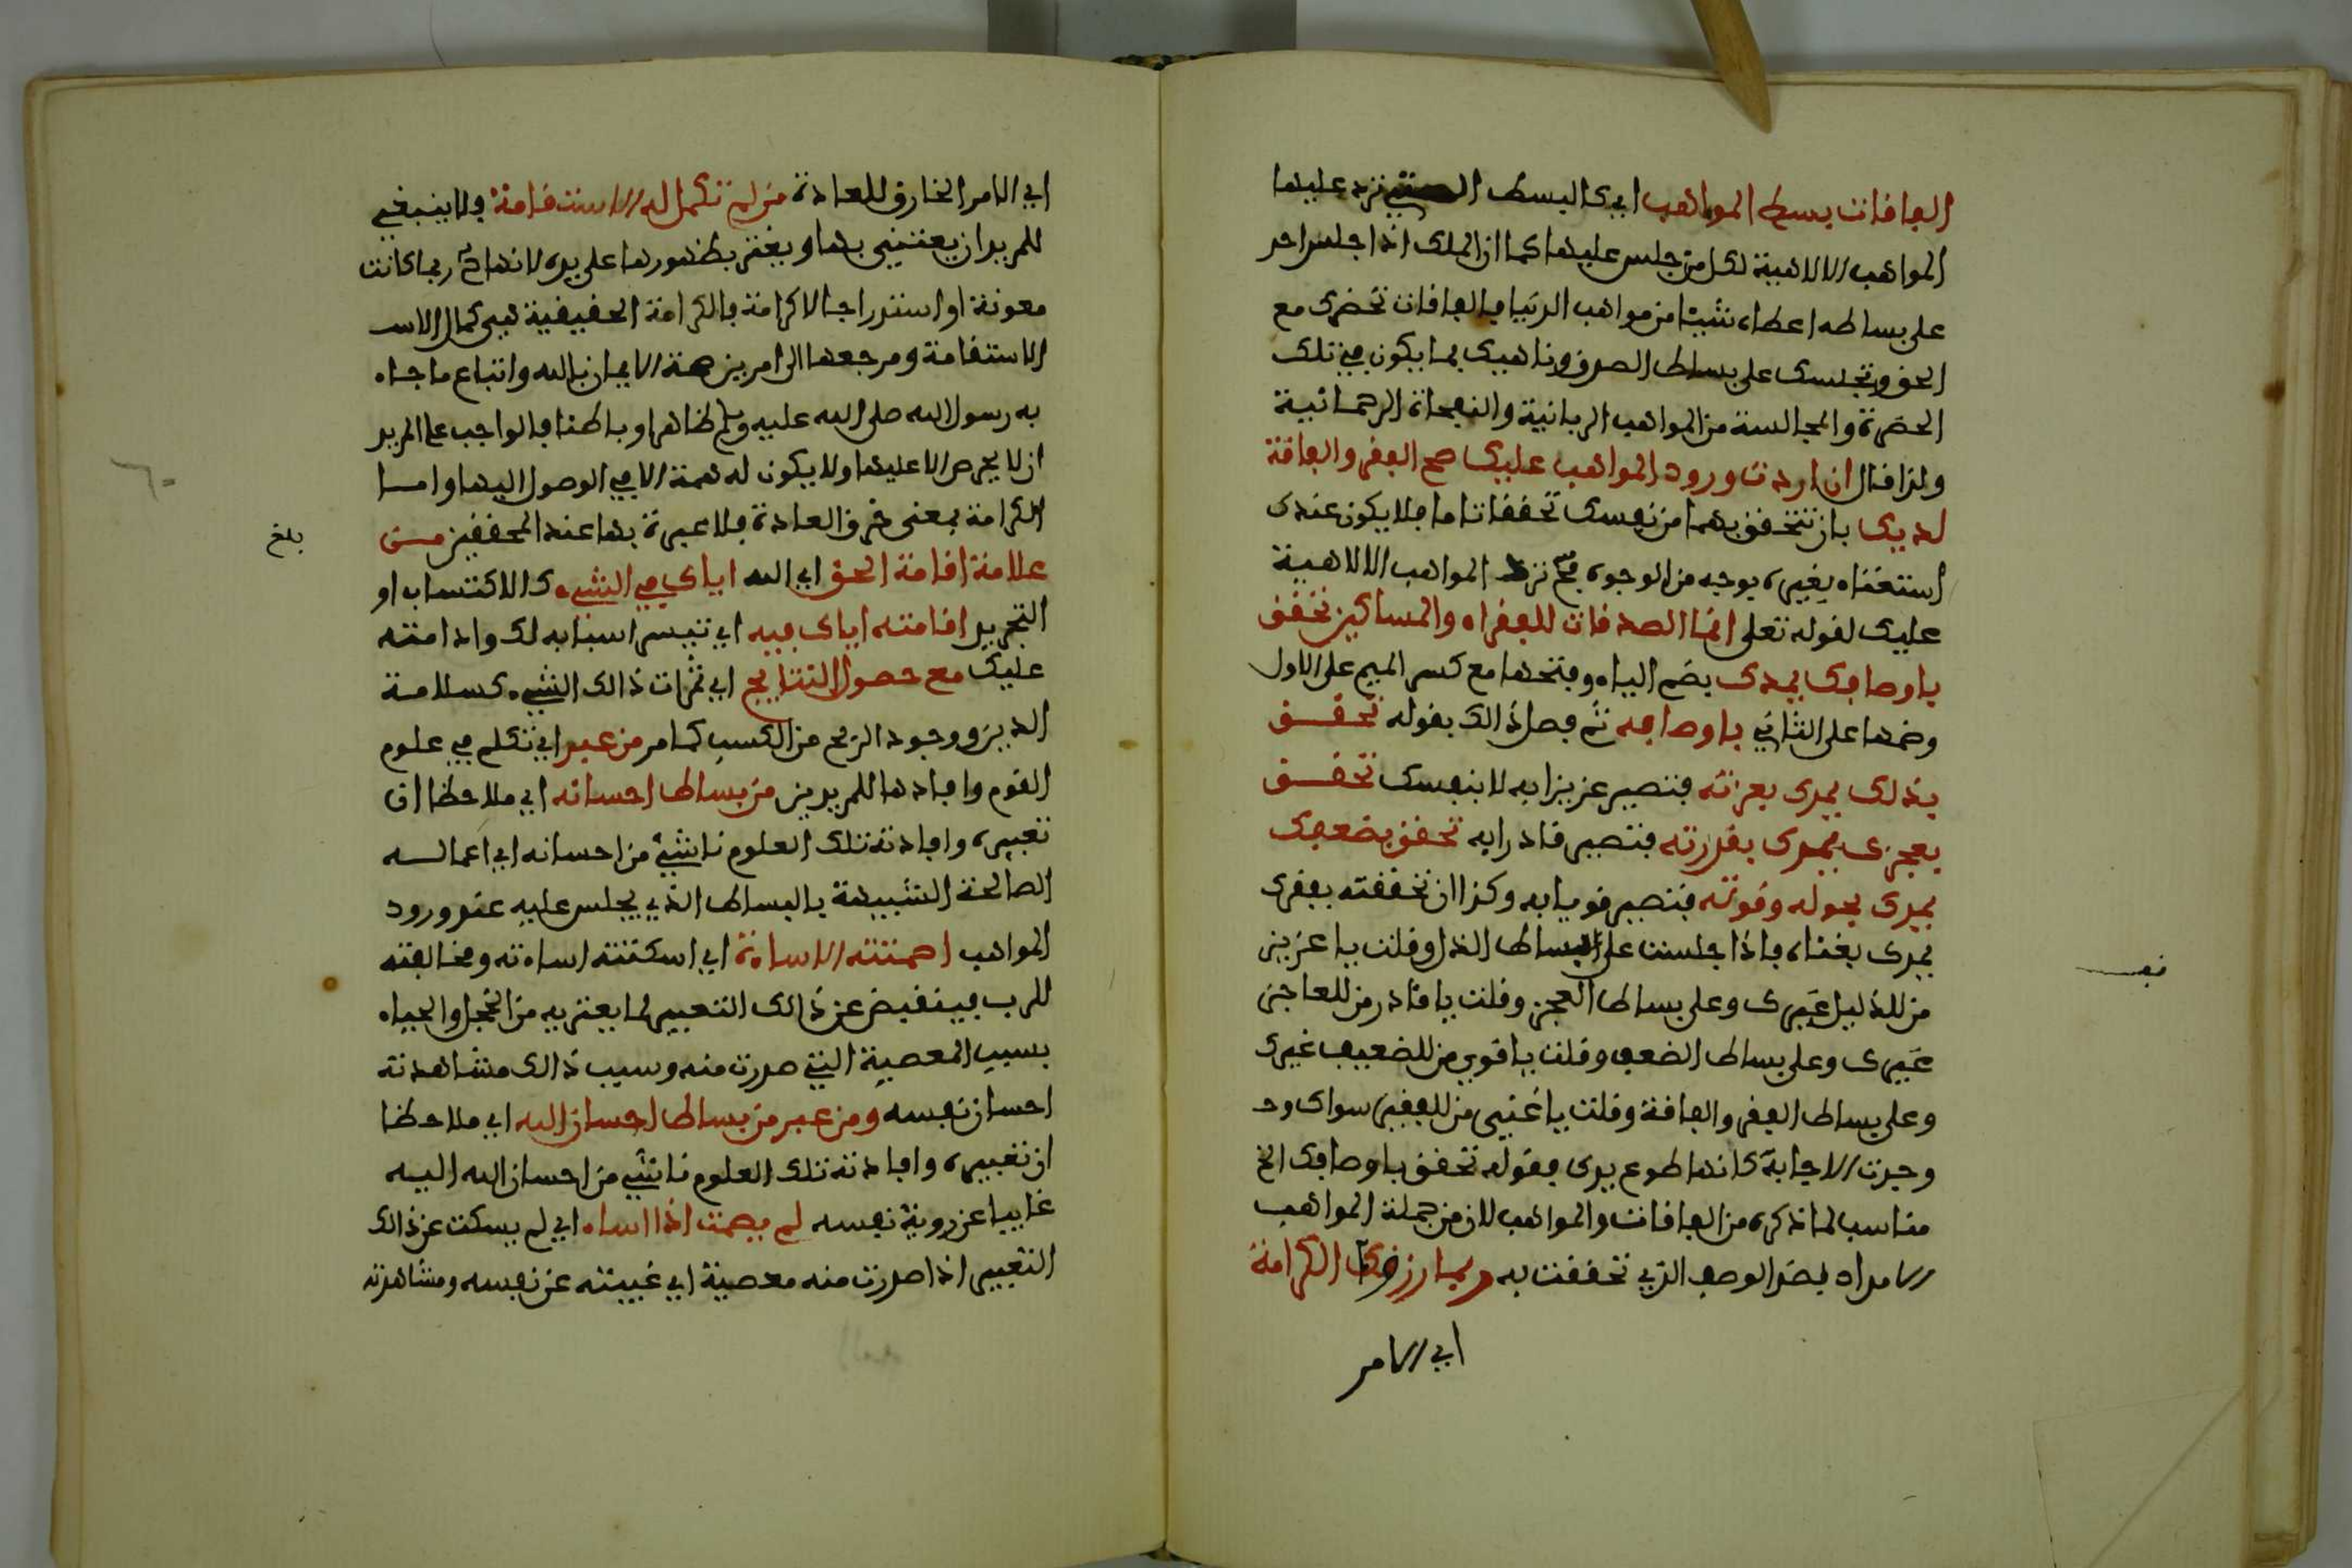 الفاقات بسط المواهب اي كالبسط التي ترد عليها
المواهب الالاهية لكل من جلس عليها كما ان الملك اذا جلس احد
على بساطه اعطاه شيئا من مواهب الدنيا فالفاقات تحضرك مع
الحق وتجلسك على بساط الصدق وناهيك بما يكون في تلك
الحضرة والمجالسة من المواهب الربانية والنفحاة الرحمانية
ولذا قال ان اردت ورود المواهب عليك صحح الفقر والفاقة
لديك بان تتحقق بهما من نفسك تحققا تاما فلا يكون عندك
استغناء بغيره بوجه من الوجوه فح ترد المواهب الالاهية
عليك لقوله تعلى انما الصدقات للفقراء والمساكين تحقق
باوصافك يمدك بضم الياء وفتحها مع كسر الميم على الاول
وضمها على الثاني باوصافه ثم فصل ذالك بقوله تحقق
بذلك يمدك بعزته فتصير عزيزا به لا بنفسك تحقق
بعجزك يمدك بقدرته فتصير قادرا به تحقق بضعفك
يمدك بحوله وقوته فتصير قويا به وكذا ان تحققته بفقرك
يمدك بغناه فاذا جلست على بساط الذل وقلت يا عزيز
من للذليل غيرك وعلى بساط العجز وقلت يا قادر من للعاجز
غيرك وعلى بساط الضعف وقلت يا قوي من للضعيف غيرك
وعلى بساط الفقر والفاقة وقلت يا غني من للفقير سواك وجد
وجدت الاجابة كانها طوع يدك فقوله تحقق باوصافك الخ
مناسب لما ذكره من الفاقات والمواهب لان من جملة المواهب
الامداد بضد الوصف الذي تحققت به وربما رزق الكرامة
اي الامر
اي الامر الخارق للعادة من لم تكمل له الاستقامة فلا ينبغي
للمريد ان يعتني بها ويغتر بظهورها على يده لانها ح ربما كانت
معونة او استدراجا لا كرامة فالكرامة الحقيقية هي كمال الاسـ
الاستقامة ومرجعها الى امرين صحة الايمان بالله واتباع ما جاء
به رسول الله صلى الله عليه وسلم ظاهرا وباطنا فالواجب على المريد
ان لا يحرص الا عليها ولا يكون له همة الا في الوصول اليها واما
الكرامة بمعنى خرق العادة فلا عبرة بها عند المحققين من
علامة اقامة الحق اي الله اياك في الشيء كالاكتساب او
التجريد اقامته اياك فيه اي تيسر اسبابه لك وادامته
عليك مع حصول النتايج اي ثمرات ذالك الشيء كسلامة
الدين ووجود الربح من الكسب كما مر من عبر اي تكلم في علوم
القوم وافادها للمريدين من بساط احسانه اي ملاحظا ان
تعبيره وافادته تلك العلوم ناشئ من احسانه اي اعماله
الصالحة الشبيهة بالبساط الذي يجلس عليه عند ورود
المواهب اصمتته الاساءة اي اسكتته اساءته ومخالفته
للرب فينقبض عن ذالك التعبير لما يعتريه من الخجل والحياء
بسبب المعصية التي صدرت منه وسبب ذالك مشاهدته
احسان نفسه ومن عبر من بساط احسان الله اي ملاحظا
ان تعبيره وافادته تلك العلوم ناشئ من احسان الله اليه
غايبا عن روية نفسه لم يصمت اذا اساء اي لم يسكت عن ذالك
التعبير اذا صدرت منه معصية اي غيبته عن نفسه ومشاهدته
بلغ
٦٠